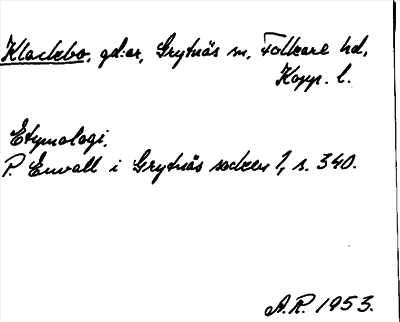 Klackbo, gd:ar, Grytnäs sn, Folkare hd,
Kopp. l.
Etymologi.
P. Envall i Grytnäs socken 1, s. 340.
A.R. 1953.